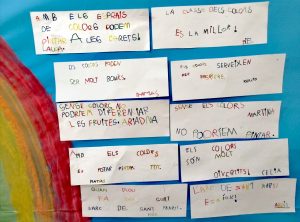 AMB ELS ESPAIS
DE COLORS PODEM
PINTAR A LES PARETS!
LAURA.
LA CLASSE DELS COLORS
ES LA MILLOR!
ELS COLORS PODEN
SER MOLT BONICS
ELS COLORS SERVEIXEN
PER
SENSE COLORS NO
PODRIEM DIFERENCIAR
LES FRUITES. ARIADNA
SENSE ELS COLORS
MARTINA
NO PODRIEM PINTAR.
AMB ELS COLORS
ES POT PINTAR TOT
MATIAS
ELS COLORS
SÓN MOLT
DIVERTITS! CELIA
QUAN PLOU
L'ARC DE SANT MARTÍ.
L'ARC DE SANT MARTÍ